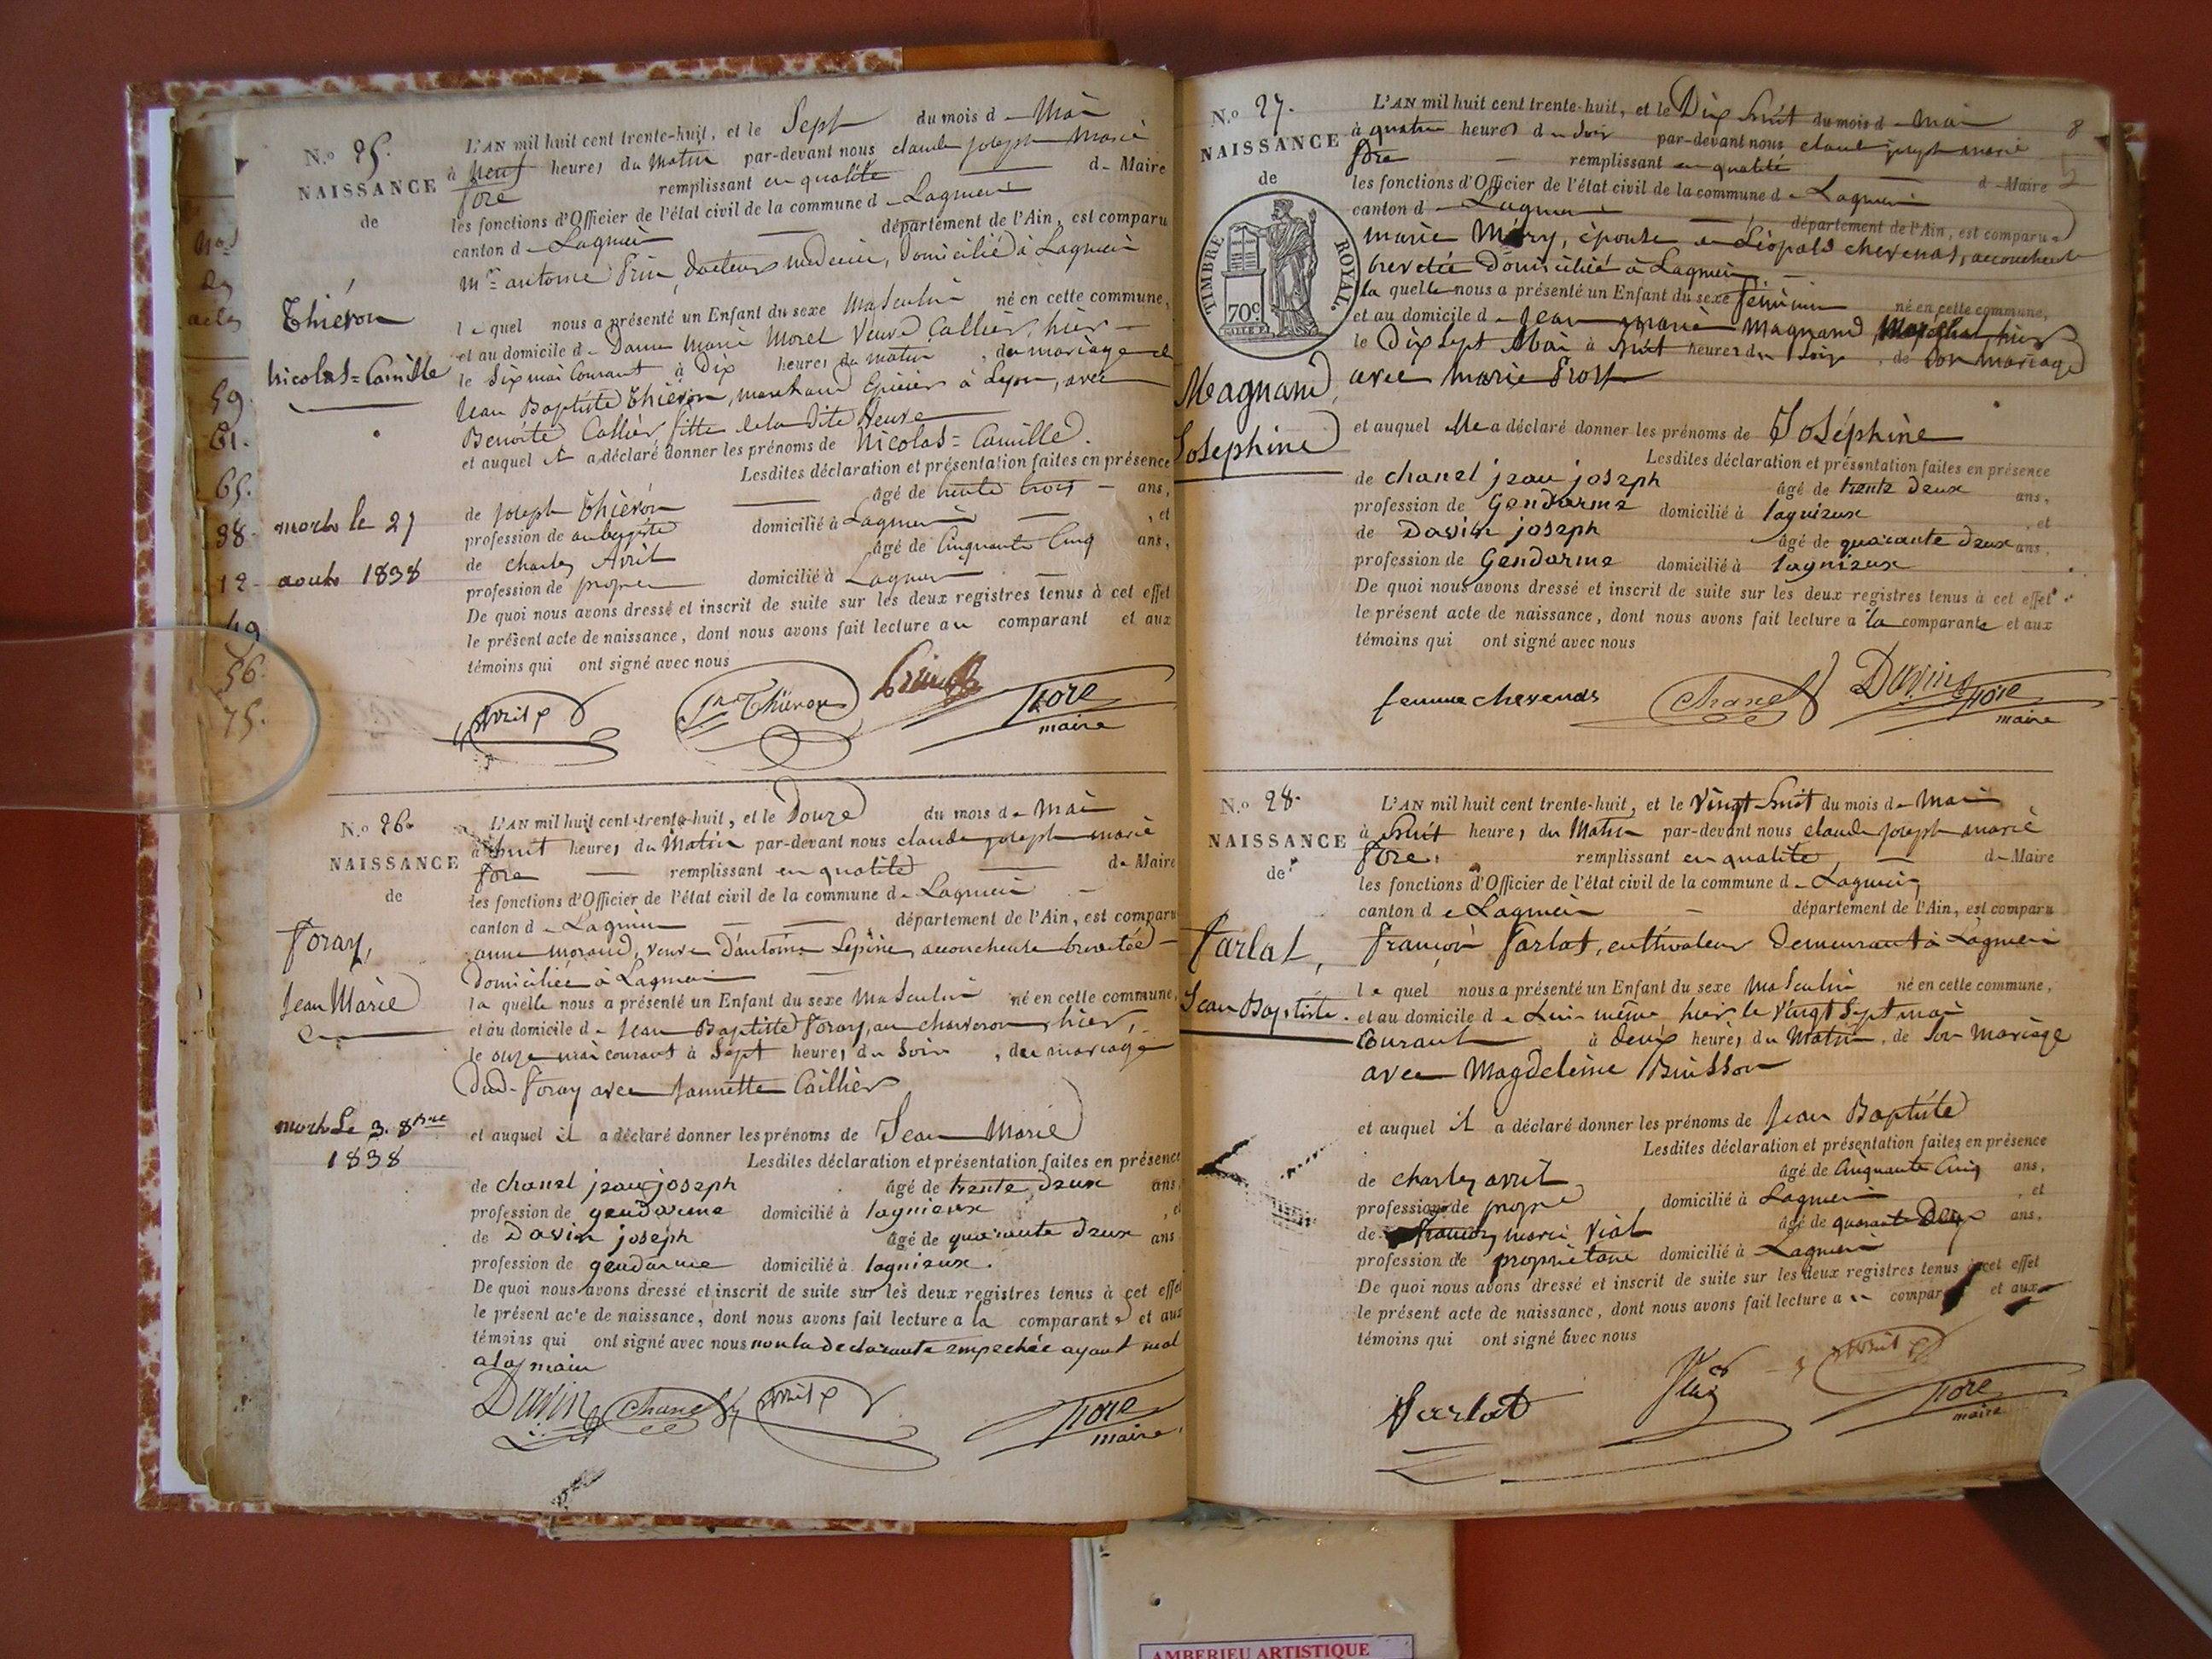 N.º 25.
NAISSANCE
de
Thiéron
Nicolas=Camille
mort le 27
août 1838
L'AN mil huit cent trente-huit, et le Sept du mois d e Mai
à neuf heures du Matin par-devant nous claude joseph marie
fore remplissant en qualité d e Maire
les fonctions d'Officier de l'état civil de la commune d e Lagnieu
canton d e Lagnieu département de l'Ain, est comparu
mr antoine docteur medecin, domicilié à Lagnieu
l e quel nous a présenté un Enfant du sexe Masculin né en cette commune,
et au domicile d e Dame Marie Morel Veuve Callier, hier
le Six mai Courant à Dix heures du matin, du mariage de
Jean Baptiste Thiéron, marchand Epicier à Lyon, avec
Benoite Callier fille de la dite Veuve
et auquel il a déclaré donner les prénoms de Nicolas=Camille.
Lesdites déclaration et présentation faites en présence
de joseph Thiéron âgé de trente trois ans,
profession de aubergiste domicilié à Lagnieu, et
de Charles Avril âgé de Cinquante Cinq ans,
profession de propre domicilié à Lagnieu
De quoi nous avons dressé et inscrit de suite sur les deux registres tenus à cet effet
le présent acte de naissance, dont nous avons fait lecture au comparant et aux
témoins qui ont signé avec nous
Avril Thiéron fore
maire
N.º 26.
NAISSANCE
de
foray,
Jean Marie
mort Le 3. 8bre
1838
L'AN mil huit cent trente-huit, et le Douze du mois d e Mai
à huit heures du Matin par-devant nous claude joseph marie
fore remplissant en qualité d e Maire
les fonctions d'Officier de l'état civil de la commune d e Lagnieu
canton d e Lagnieu département de l'Ain, est comparu
anne morand, veuve d'antoine Lepine, accoucheuse brevetée
domiciliée à Lagnieu
la quelle nous a présenté un Enfant du sexe Masculin né en cette commune,
et au domicile d e Jean Baptiste foray, au hier,
le onze mai courant à Sept heures du Soir, du mariage
dud. foray avec Jannette Caillier
et auquel il a déclaré donner les prénoms de Jean Marie
Lesdites déclaration et présentation faites en présence
de chanel jean joseph âgé de trente deux ans,
profession de gendarme domicilié à lagnieux, et
de Davin joseph âgé de quarante deux ans
profession de gendarme domicilié à lagnieux.
De quoi nous avons dressé et inscrit de suite sur les deux registres tenus à cet effet
le présent acte de naissance, dont nous avons fait lecture a la comparante et aux
témoins qui ont signé avec nous non la declarante empechée ayant mal
a la main
Davin Chanel Avril fore
maire
8
N.º 27.
NAISSANCE
de
TIMBRE ROYAL.
70c
Magnand,
Josephine
L'AN mil huit cent trente-huit, et le Dix huit du mois d e mai
à quatre heures du Soir par-devant nous claude joseph marie
fore remplissant en qualité d e Maire
les fonctions d'Officier de l'état civil de la commune d e Lagnieu
canton d e Lagnieu département de l'Ain, est comparue
marie Méry, épouse de Léopold chevenas, accoucheuse
brevetée domiciliée à Lagnieu
la quelle nous a présenté un Enfant du sexe féminin né en cette commune,
et au domicile d e Jean marie Magnand, hier
le Dix Sept Mai à huit heures du Soir, de son mariage
avec Marie Frost
et auquel elle a déclaré donner les prénoms de Joséphine
Lesdites déclaration et présentation faites en présence
de chanel jean joseph âgé de trente deux ans,
profession de Gendarme domicilié à lagnieux, et
de Davin joseph âgé de quarante deux ans,
profession de Gendarme domicilié à lagnieux
De quoi nous avons dressé et inscrit de suite sur les deux registres tenus à cet effet
le présent acte de naissance, dont nous avons fait lecture a la comparante et aux
témoins qui ont signé avec nous
femme chevenas Chanel Davin fore
maire
N.º 28.
NAISSANCE
de
Farlat,
Jean Baptiste.
L'AN mil huit cent trente-huit, et le Vingt huit du mois d e Mai
à huit heures du Matin par-devant nous claude joseph marie
fore, remplissant en qualité d e Maire
les fonctions d'Officier de l'état civil de la commune d e Lagnieu
canton d e Lagnieu département de l'Ain, est comparu
françois farlat, cultivateur demeurant à Lagnieu
l e quel nous a présenté un Enfant du sexe Masculin né en cette commune,
et au domicile d e Lui même hier le Vingt Sept mai
Courant à deux heures du Matin, de Son Mariage
avec Magdeleine Buisson
et auquel il a déclaré donner les prénoms de Jean Baptiste
Lesdites déclaration et présentation faites en présence
de charles avril âgé de Cinquante Cinq ans,
profession de propre domicilié à Lagnieu, et
de françois marie Vial âgé de quarante Deux ans,
profession de propriétaire domicilié à Lagnieu
De quoi nous avons dressé et inscrit de suite sur les deux registres tenus à cet effet
le présent acte de naissance, dont nous avons fait lecture au compar et aux
témoins qui ont signé avec nous
farlat Vial Avril fore
maire
59.
61.
65.
38.
12.
49
56.
75.
AMBERIEU ARTISTIQUE